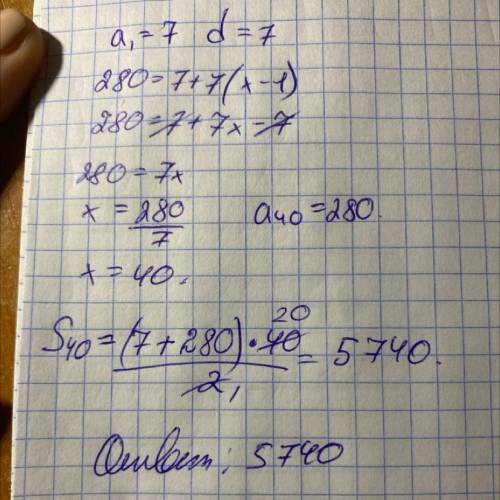 a₁ = 7 d = 7
280 = 7 + 7(x - 1)
280 = 7 + 7x - 7
280 = 7x
x = 280/7 a₄₀ = 280.
x = 40.
20
S₄₀ = (7 + 280) · 40 / 2, = 5740.
Ответ: 5740